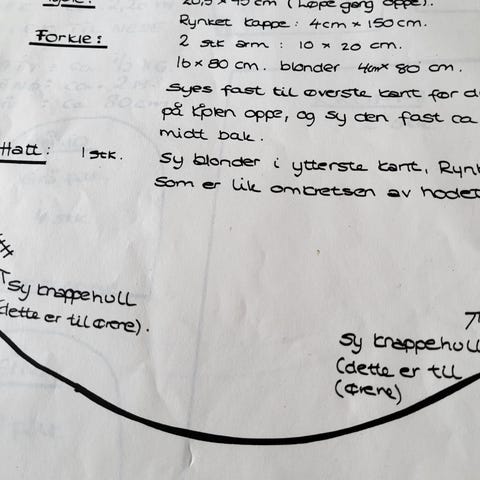 20,5 x 45 cm (Løpe gang oppe).
Rynket kappe : 4cm x 150 cm.
Forkle : 2 stk arm : 10 x 20 cm.
16 x 80 cm. blonder 4cm x 80 cm.
Syes fast til øverste kant før
på kjolen oppe, og sy den fast ca
midt bak.
Hatt : 1 stk. Sy blonder i ytterste kant,
som er lik omkretsen av hodet
Sy knappehull
(dette er til ørene).
Sy knappehull
(dette er til
(ørene)